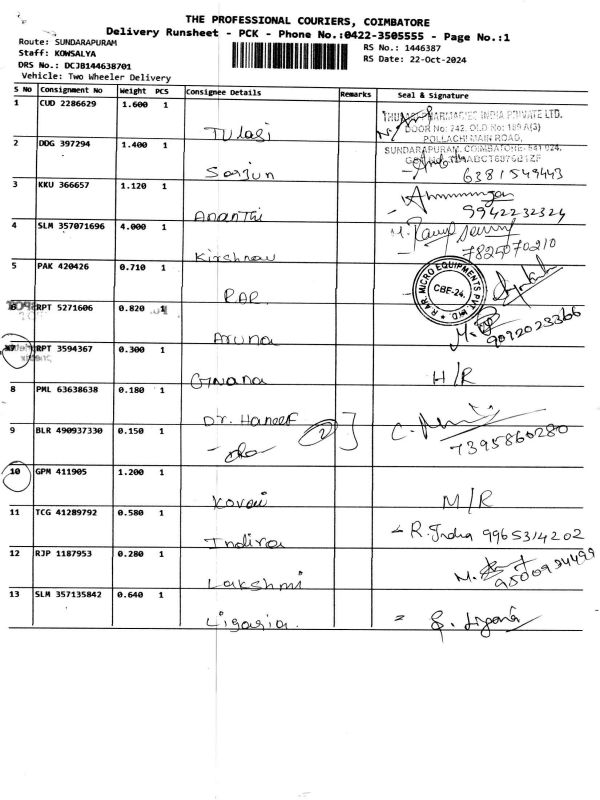 THE PROFESSIONAL COURIERS, COIMBATORE
Delivery Runsheet - PCK - Phone No.:0422-3505555 - Page No.:1
Route: SUNDARAPURAM
Staff: KOWSALYA
DRS No.: DCJB144638701
Vehicle: Two Wheeler Delivery
RS No.: 1446387
RS Date: 22-Oct-2024
S No Consignment No Weight PCS Consignee Details Remarks Seal & Signature
1 CUD 2286629 1.600 1 Tulasi
PRIVATE LTD.
DOOR No: 742, OLD No: 189 A(3)
POLLACHI MAIN ROAD,
SUNDARAPURAM, COIMBATORE- 641 024.
2 DDG 397294 1.400 1 Sarjun 6381549443
3 KKU 366657 1.120 1 Ananthi 9942232324
4 SLM 357071696 4.000 1 7825070210
5 PAK 420426 0.710 1 RAR
RAR MICRO EQUIPMENTS PVT. LTD.
CBE-24.
6 RPT 5271606 0.820 1 Aruna 9092023366
7 RPT 3594367 0.300 1 Gnana H/R
8 PML 63638638 0.180 1 Dr. Haneef
9 BLR 490937330 0.150 1 -do- 2 7395860280
10 GPM 411905 1.200 1 Kovai M/R
11 TCG 41289792 0.580 1 Indira R. India 9965314202
12 RJP 1187953 0.280 1 Lakshmi 9500934499
13 SLM 357135842 0.640 1 Ligoria.